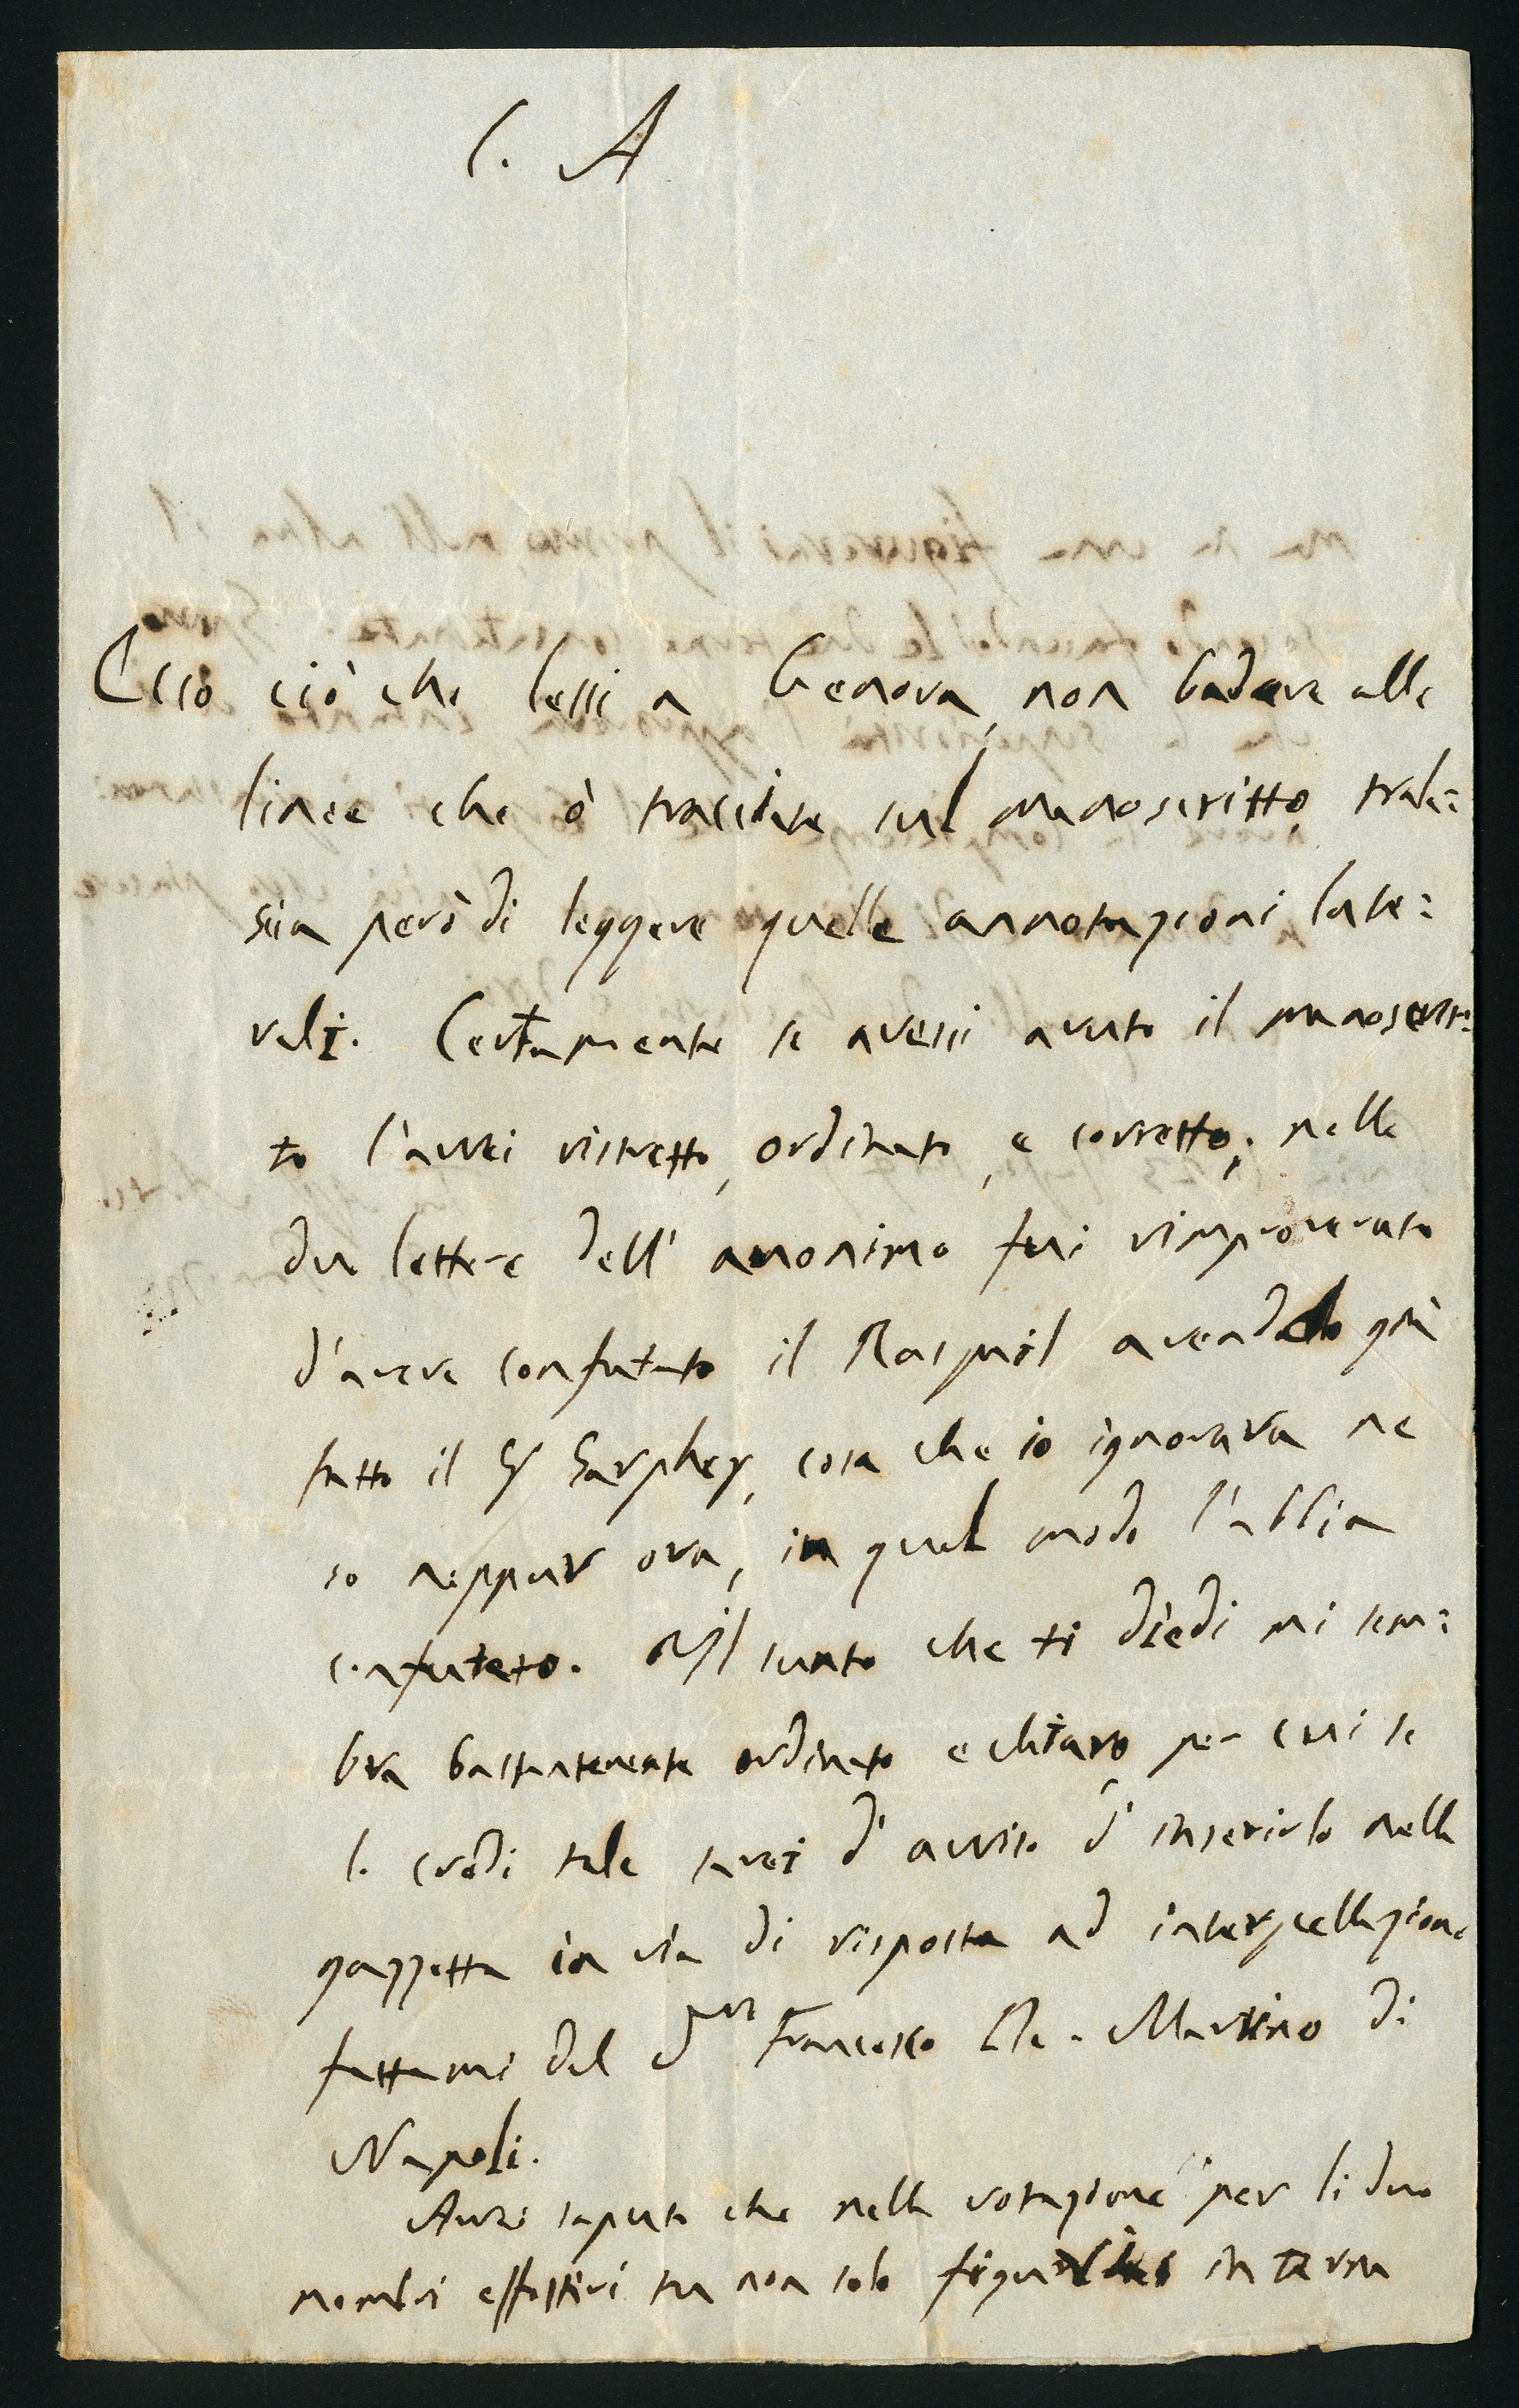 C. A
Ecco ciò che lessi a Genova, non badare alle
linee che ò tracciate sul manoscritto, trala=
scia però di leggere quelle annotazioni late=
rali. Certamente se avessi avuto il manoscrit=
to l'avrei ristretto, ordinato, e corretto; nelle
due lettere dell' anonimo fui rimproverato
d'avere confutato il Raspail avendolo già
fatto il Sr Sarphey, cosa che io ignorava ne
so neppur ora, in qual modo l'abbia
confutato. Il sunto che ti diedi mi sem=
bra bastantemente ordinato e chiaro, per cui se
lo credi tale sarei d' avviso d' inserirlo nella
gazzetta in via di risposta ad interpellazione
fattami dal Dor Francesco De-Martino di
Napoli.
Avrai saputo che nella votazione per li due
membri effettivi tu non solo in terna